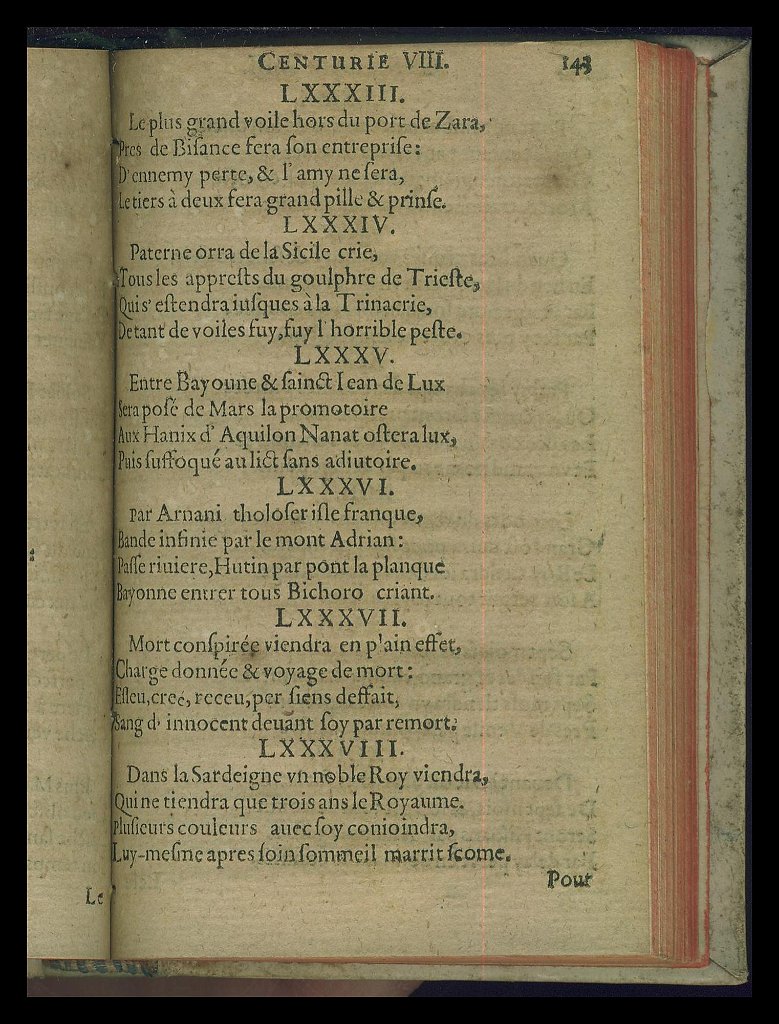 CENTURIE VIII. 143
LXXXIII.
Le plus grand voile hors du port de Zara,
Pres de Bisance fera son entreprise:
D'ennemy perte, & l'amy ne sera,
Le tiers à deux fera grand pille & prinse.
LXXXIV.
Paterne orra de la Sicile crie,
Tous les appresss du goulphre de Trieste,
Qui s'estendra iusques à la Trinacrie,
De tant de voiles fuy, fuy l'horrible peste.
LXXXV.
Entre Bayoune & sainct Iean de Lux
Sera posé de Mars la promotoire
Aux Hanix d'Aquilon Nanat ostera lux,
Puis suffoqué au lict sans adiutoire.
LXXXVI.
Par Arnani tholoser isle franque,
Bande infinie par le mont Adrian:
Passe riuiere, Hutin par pont la planque
Bayonne entrer tous Bichoro criant.
LXXXVII.
Mort conspirée viendra en plain effet,
Charge donnée & voyage de mort:
Esleu, creé, receu, per siens deffait,
Sang d'innocent deuant soy par remort.
LXXXVIII.
Dans la Sardeigne vn noble Roy viendra,
Qui ne tiendra que trois ans le Royaume.
Plusieurs couleurs auec soy conioindra,
Luy-mesme apres soin sommeil marrit scome.
Pour
Le